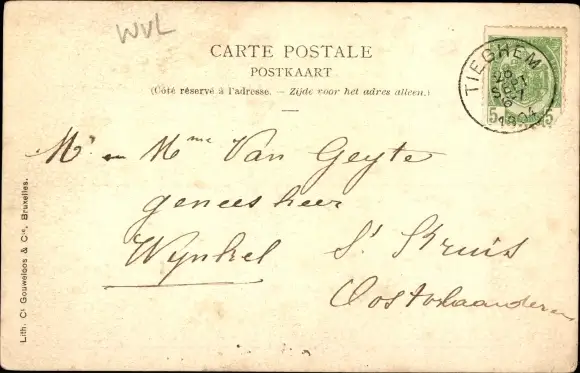 WVL
CARTE POSTALE
POSTKAART
(Côté réservé à l'adresse. — Zijde voor het adres alleen.)
TIEGHEM
5 5
Mr en Mme Van Geyte
geneesheer
Wynkel St Kruis
Oostvlaanderen
Lith. Ch Gouweloos & Cie, Bruxelles.